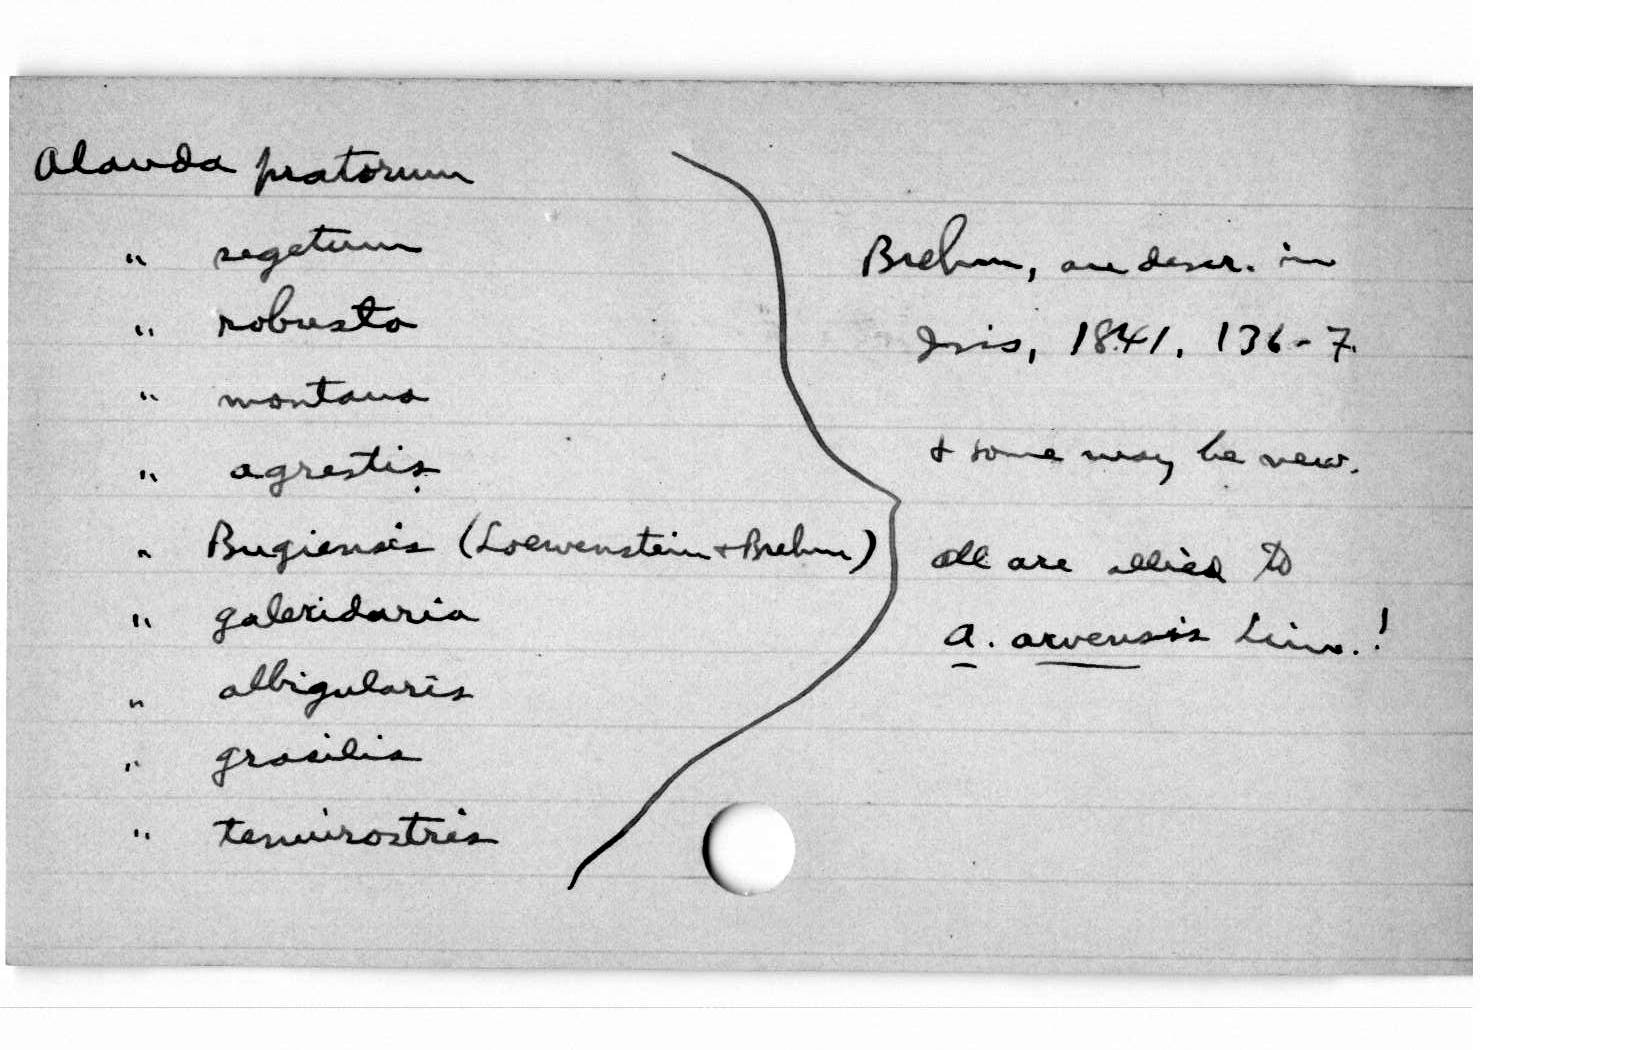 Alauda pratorum
" segetum
" robusta
" montana
" agrestis
" Bugiensis (Loewenstein + Brehm)
" galeridaria
" albigularis
" gracilis
" tenuirostris
Brehm, are descr. in
Isis, 1841, 136-7.
& some may be new.
all are allied to
A. arvensis Linn.!